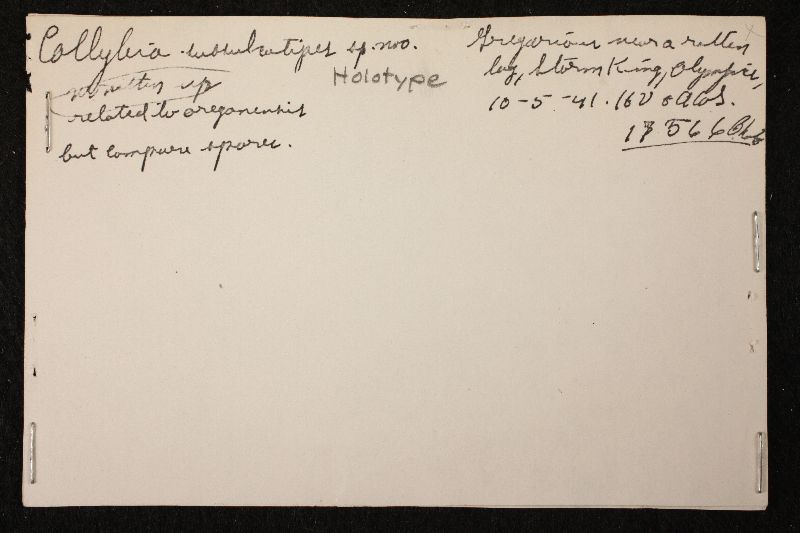 Collybia subsulcatipes sp. nov.
Holotype
related to oregonensis
but compare spores.
Gregarious near a rotten
log, Storm King, Olympic,
10-5-41.
17566